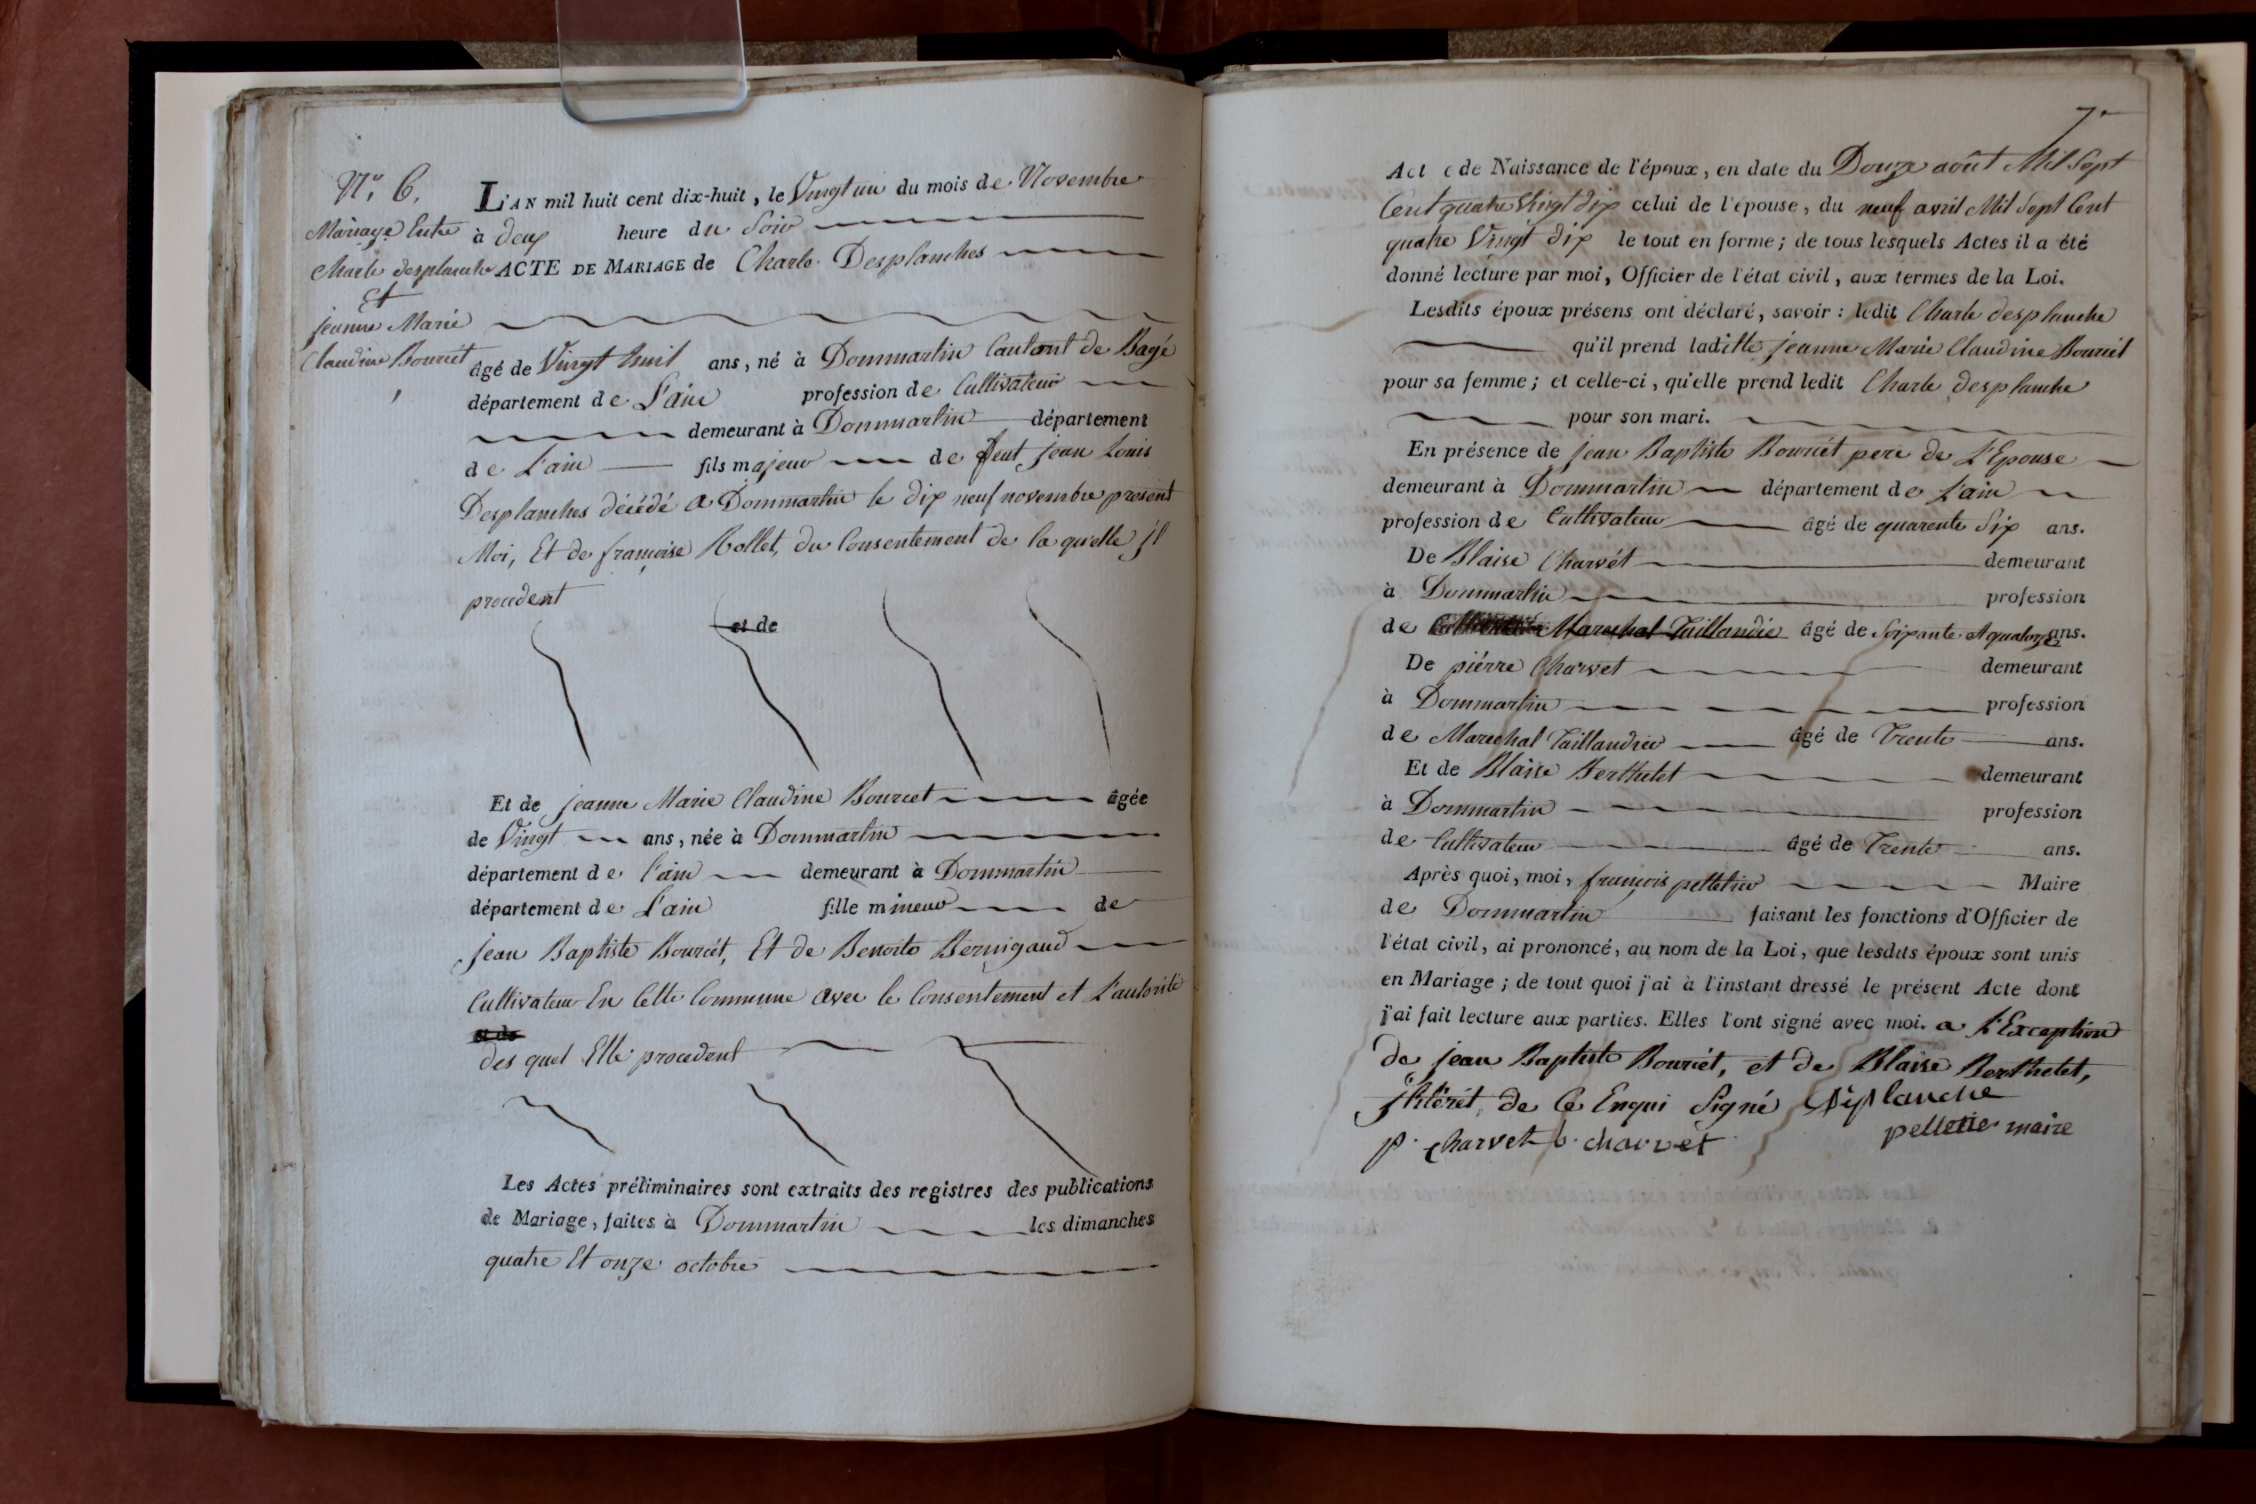 N.º 6.
Mariage Entre
Charle desplanche
Et
jeanne Marie
Claudine Bourcét
L'AN mil huit cent dix-huit, le Vingt un du mois de Novembre
à deux heure du Soir
ACTE DE MARIAGE de Charle Desplanches
âgé de Vingt huit ans, né à Dommartin Cantont de Bagé
département de L'ain profession de Cultivateur
demeurant à Dommartin département
de L'ain fils majeur de feut jean Louis
Desplanches décédé a Dommartin le dix neuf novembre present
Moi, Et de françoise Rollet, du Consentement de la quelle jl
procedent
et de
Et de jeanne Marie Claudine Bourcet âgée
de Vingt ans, née à Dommartin
département de l'ain demeurant à Dommartin
département de L'ain fille mineur de
jean Baptiste Bourcét, Et de Benoite Bernigaud
Cultivateur En Cette Commune avec le Consentement et L'autorité
et de
des quel Elle procedent
Les Actes préliminaires sont extraits des registres des publications
de Mariage, faites à Dommartin les dimanches
quatre Et onze octobre
7
Acte de Naissance de l'époux, en date du Douze août Mil Sept
Cent quatre Vingt dix celui de l'épouse, du neuf avril Mil Sept Cent
quatre Vingt dix le tout en forme; de tous lesquels Actes il a été
donné lecture par moi, Officier de l'état civil, aux termes de la Loi.
Lesdits époux présens ont déclaré, savoir: ledit Charle desplanche
qu'il prend laditte jeanne Marie Claudine Bourcét
pour sa femme; et celle-ci, qu'elle prend ledit Charle desplanche
pour son mari.
En présence de jean Baptiste Bourcét pere de L'Epouse
demeurant à Dommartin département de L'ain
profession de Cultivateur âgé de quarente Six ans.
De Blaise Charvét demeurant
à Dommartin profession
de Marechal Taillandie âgé de Soixante et quatorze ans.
De piérre Charvet demeurant
à Dommartin profession
de Marechal Taillandier âgé de Trente ans.
Et de Blaise Berthelet demeurant
à Dommartin profession
de Cultivateur âgé de Trente ans.
Après quoi, moi, françois pelletier Maire
de Dommartin faisant les fonctions d'Officier de
l'état civil, ai prononcé, au nom de la Loi, que lesdits époux sont unis
en Mariage; de tout quoi j'ai à l'instant dressé le présent Acte dont
j'ai fait lecture aux parties. Elles l'ont signé avec moi. a L'Exception
de jean Baptiste Bourcét, et de Blaise Berthelet,
jllitérét, de Ce Enqui Signé Déplanche
p. charvet b. charvet pelletier maire